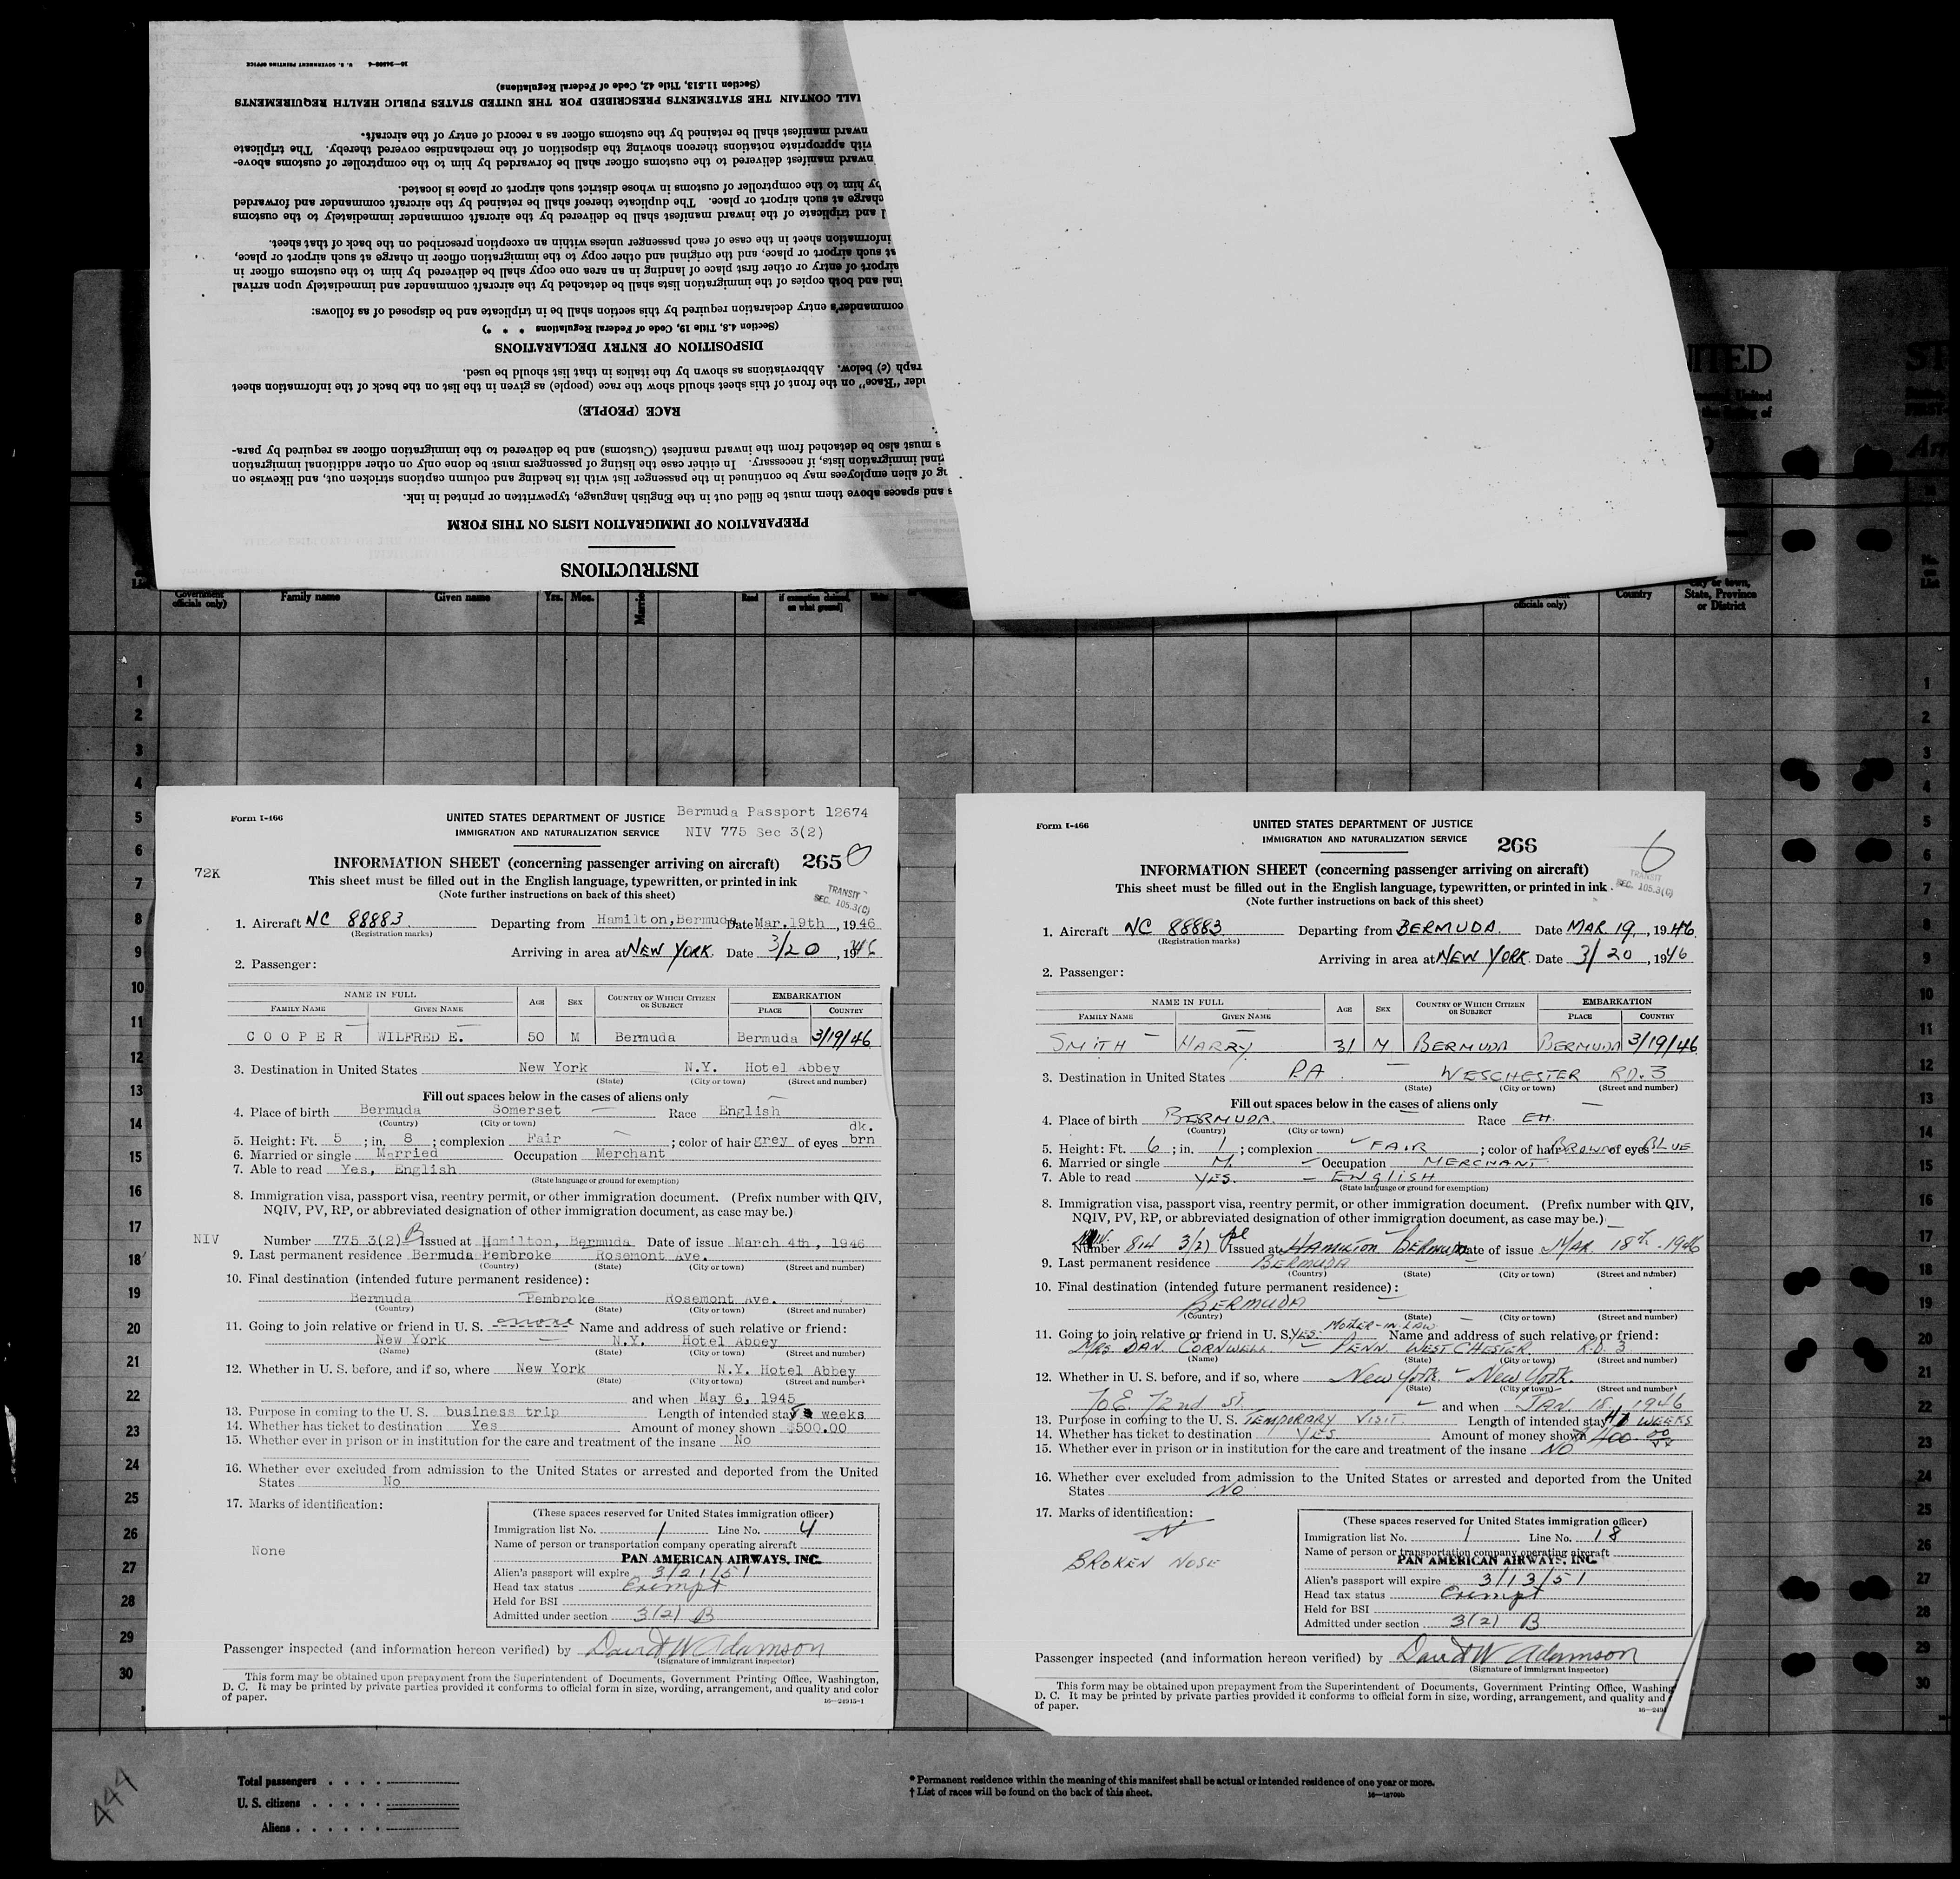 INSTRUCTIONS
PREPARATION OF IMMIGRATION LISTS ON THIS FORM
and spaces above them must be filled out in the English language, typewritten or printed in ink.
of alien employees may be continued in the passenger list with its heading and column captions stricken out, and likewise on
immigration lists, if necessary. In either case the listing of passengers must be done only on other additional immigration
must also be detached from the inward manifest (Customs) and be delivered to the immigration officer as required by para-
RACE (PEOPLE)
"Race" on the front of this sheet should show the race (people) as given in the list on the back of the information sheet
(c) below. Abbreviations as shown by the italics in that list should be used.
DISPOSITION OF ENTRY DECLARATIONS
(Section 4.8, Title 19, Code of Federal Regulations * * *)
commander's entry declaration required by this section shall be in triplicate and be disposed of as follows:
and both copies of the immigration lists shall be detached by the aircraft commander and immediately upon arrival
airport of entry or other first place of landing in an area one copy shall be delivered by him to the customs officer in
at such airport or place, and the original and other copy to the immigration officer in charge at such airport or place,
information sheet in the case of each passenger unless within an exception prescribed on the back of that sheet.
and triplicate of the inward manifest shall be delivered by the aircraft commander immediately to the customs
charge at such airport or place. The duplicate thereof shall be retained by the aircraft commander and forwarded
by him to the comptroller of customs in whose district such airport or place is located.
inward manifest delivered to the customs officer shall be forwarded by him to the comptroller of customs above-
with appropriate notations thereon showing the disposition of the merchandise covered thereby. The triplicate
inward manifest shall be retained by the customs officer as a record of entry of the aircraft.
CONTAIN THE STATEMENTS PRESCRIBED FOR THE UNITED STATES PUBLIC HEALTH REQUIREMENTS
(Section 11.513, Title 42, Code of Federal Regulations)
U. S. GOVERNMENT PRINTING OFFICE
Government officials only) Family name Given name Yrs. Mos. Read if exemption claimed, on what ground] Write officials only) Country City or town, State, Province or District
1
2
3
4
5
6
7
8
9
10
11
12
13
14
15
16
17
18
19
20
21
22
23
24
25
26
27
28
29
30
Form I-466
UNITED STATES DEPARTMENT OF JUSTICE Bermuda Passport 12674
IMMIGRATION AND NATURALIZATION SERVICE NIV 775 Sec 3(2)
72K
INFORMATION SHEET (concerning passenger arriving on aircraft) 265
This sheet must be filled out in the English language, typewritten, or printed in ink
(Note further instructions on back of this sheet)
TRANSIT
SEC. 105.3(C)
1. Aircraft NC 88883 Departing from Hamilton,Bermuda Date Mar.19th, 1946
(Registration marks)
Arriving in area at NEW YORK. Date 3/20, 1946
2. Passenger:
NAME IN FULL AGE SEX COUNTRY OF WHICH CITIZEN OR SUBJECT EMBARKATION
FAMILY NAME GIVEN NAME PLACE COUNTRY
COOPER WILFRED E. 50 M Bermuda Bermuda 3/19/46
3. Destination in United States New York N.Y. Hotel Abbey
(State) (City or town) (Street and number)
Fill out spaces below in the cases of aliens only
4. Place of birth Bermuda Somerset Race English
(Country) (City or town)
5. Height: Ft. 5 ; in. 8 ; complexion Fair ; color of hair grey of eyes dk. brn
6. Married or single Married Occupation Merchant
7. Able to read Yes, English
(State language or ground for exemption)
8. Immigration visa, passport visa, reentry permit, or other immigration document. (Prefix number with QIV,
NQIV, PV, RP, or abbreviated designation of other immigration document, as case may be.)
NIV Number 775 3(2) B Issued at Hamilton, Bermuda Date of issue March 4th, 1946
9. Last permanent residence Bermuda Pembroke Rosemont Ave.
(Country) (State) (City or town) (Street and number)
10. Final destination (intended future permanent residence):
Bermuda Pembroke Rosemont Ave.
(Country) (State) (City or town) (Street and number)
11. Going to join relative or friend in U. S. none Name and address of such relative or friend:
New York N.Y. Hotel Abbey
(Name) (State) (City or town) (Street and number)
12. Whether in U. S. before, and if so, where New York N.Y. Hotel Abbey
(State) (City or town) (Street and number)
and when May 6, 1945
13. Purpose in coming to the U. S. business trip Length of intended stay weeks
14. Whether has ticket to destination Yes Amount of money shown $500.00
15. Whether ever in prison or in institution for the care and treatment of the insane No
16. Whether ever excluded from admission to the United States or arrested and deported from the United
States No
17. Marks of identification:
None
(These spaces reserved for United States immigration officer)
Immigration list No. 1 Line No. 4
Name of person or transportation company operating aircraft
PAN AMERICAN AIRWAYS, INC.
Alien's passport will expire 3/21/51
Head tax status Exempt
Held for BSI
Admitted under section 3(2) B
Passenger inspected (and information hereon verified) by David W Adamson
(Signature of immigrant inspector)
This form may be obtained upon prepayment from the Superintendent of Documents, Government Printing Office, Washington,
D. C. It may be printed by private parties provided it conforms to official form in size, wording, arrangement, and quality and color
of paper.
16—24915-1
Form I-466
UNITED STATES DEPARTMENT OF JUSTICE
IMMIGRATION AND NATURALIZATION SERVICE 266
INFORMATION SHEET (concerning passenger arriving on aircraft)
This sheet must be filled out in the English language, typewritten, or printed in ink.
(Note further instructions on back of this sheet)
TRANSIT
SEC. 105.3(C)
1. Aircraft NC 88883 Departing from BERMUDA. Date MAR 19, 1946
(Registration marks)
Arriving in area at NEW YORK. Date 3/20, 1946
2. Passenger:
NAME IN FULL AGE SEX COUNTRY OF WHICH CITIZEN OR SUBJECT EMBARKATION
FAMILY NAME GIVEN NAME PLACE COUNTRY
SMITH HARRY 31 M BERMUDA BERMUDA 3/19/46
3. Destination in United States PA. WESCHESTER RD. 3
(State) (City or town) (Street and number)
Fill out spaces below in the cases of aliens only
4. Place of birth BERMUDA. Race EH.
(Country) (City or town)
5. Height: Ft. 6 ; in. 1 ; complexion FAIR ; color of hair BROWN of eyes BLUE
6. Married or single M. Occupation MERCHANT.
7. Able to read YES. ENGLISH
(State language or ground for exemption)
8. Immigration visa, passport visa, reentry permit, or other immigration document. (Prefix number with QIV,
NQIV, PV, RP, or abbreviated designation of other immigration document, as case may be.)
Number 814 3(2) Issued at HAMILTON BERMUDA Date of issue MAR. 18th. 1946
9. Last permanent residence BERMUDA
(Country) (State) (City or town) (Street and number)
10. Final destination (intended future permanent residence):
BERMUDA
(Country) (State) (City or town) (Street and number)
MOTHER-IN-LAW
11. Going to join relative or friend in U. S. YES. Name and address of such relative or friend:
MRS. DAN. CORNWELL PENN. WEST CHESTER R.D. 3
(Name) (State) (City or town) (Street and number)
12. Whether in U. S. before, and if so, where New York - New York.
(State) (City or town) (Street and number)
70 E. 72nd St. and when JAN. 18, 1946
13. Purpose in coming to the U. S. TEMPORARY VISIT. Length of intended stay WEEKS
14. Whether has ticket to destination YES Amount of money shown 400.00
15. Whether ever in prison or in institution for the care and treatment of the insane NO
16. Whether ever excluded from admission to the United States or arrested and deported from the United
States NO
17. Marks of identification:
BROKEN NOSE
(These spaces reserved for United States immigration officer)
Immigration list No. 1 Line No. 18
Name of person or transportation company operating aircraft
PAN AMERICAN AIRWAYS, INC.
Alien's passport will expire 3/13/51
Head tax status Exempt
Held for BSI
Admitted under section 3(2) B
Passenger inspected (and information hereon verified) by David W Adamson
(Signature of immigrant inspector)
This form may be obtained upon prepayment from the Superintendent of Documents, Government Printing Office, Washing
D. C. It may be printed by private parties provided it conforms to official form in size, wording, arrangement, and quality and
of paper.
Total passengers
U. S. citizens
Aliens
444
* Permanent residence within the meaning of this manifest shall be actual or intended residence of one year or more.
† List of races will be found on the back of this sheet.